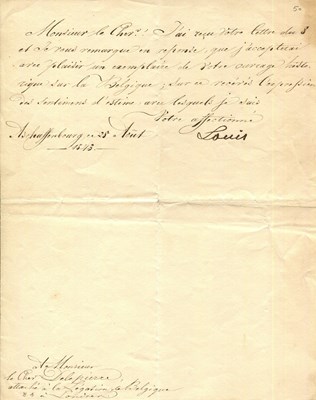 50
Monsieur le Cher! J'ai reçu Votre lettre du 8
et Je vous remarque en reponse, que j'accepterai
avec plaisir un exemplaire de Votre ouvrage histo-
rique sur la Belgique, Sur ce recevés l'expression
des Sentimens d'estime avec lesquels je suis
Votre affectionné
Aschaffenbourg ce 28 Août
Louis
1843
A Monsieur
le Cher Delepierre
attaché à la Légation de Belgique
à Londres